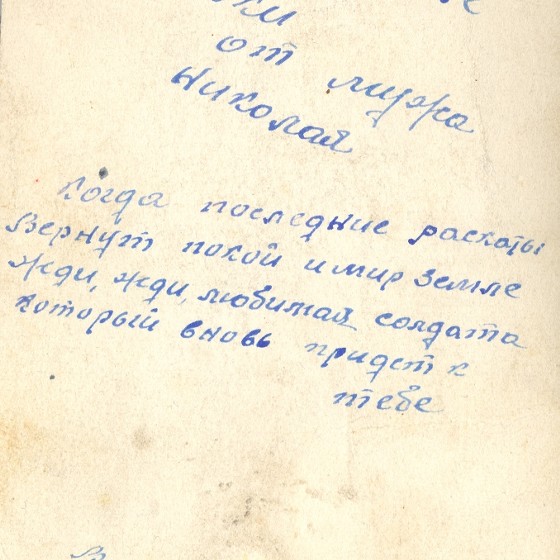 от мужа
Николая
Когда последние раскаты
Вернут покой и мир Земле
Жди, жди, любимая солдата
который вновь придет к
тебе